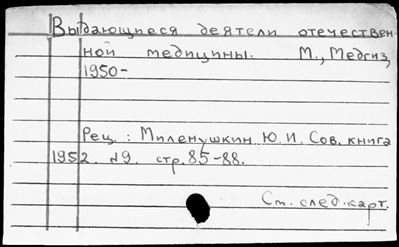 Выдающиеся деятели отечествен-
ной медицины. М., Медгиз,
1950-
Рец.: Миленушкин Ю.И. Сов. книга
1952. №9. стр. 85-88.
См. след. карт.